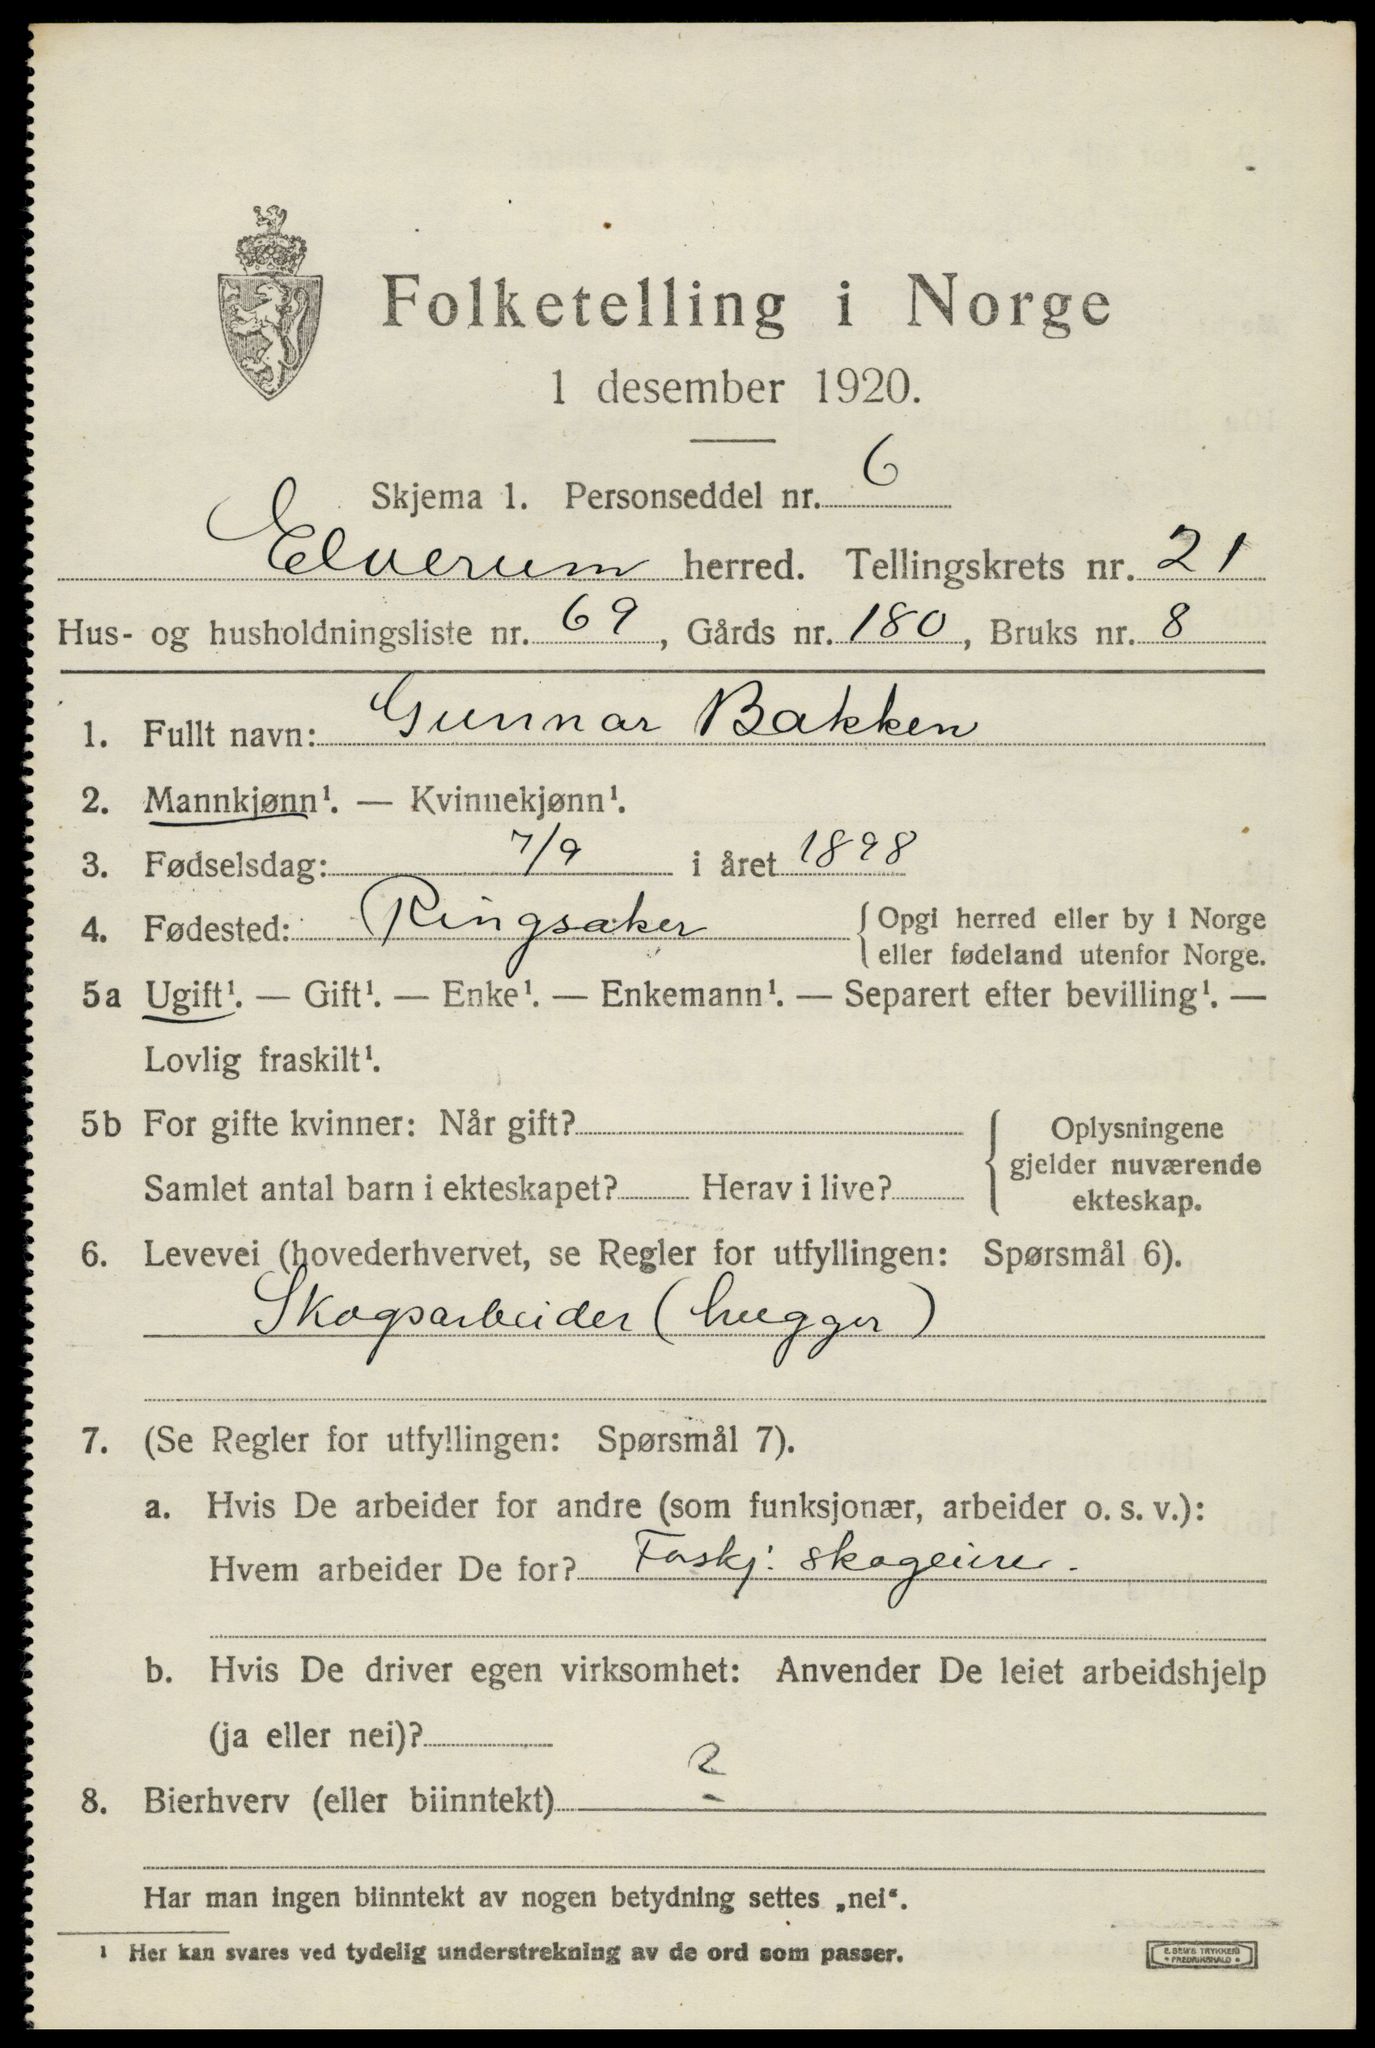 Folketelling i Norge
1 desember 1920.
Skjema 1. Personseddel nr. 6
Elverum herred. Tellingskrets nr. 21
Hus- og husholdningsliste nr. 69, Gårds nr. 180, Bruks nr. 8
1. Fullt navn: Gunnar Bakken
2. Mannkjønn¹. — Kvinnekjønn¹.
3. Fødselsdag: 7/9 i året 1898
4. Fødested: Ringsaker { Opgi herred eller by i Norge
eller fødeland utenfor Norge.
5a Ugift¹. — Gift¹. — Enke¹. — Enkemann¹. — Separert efter bevilling¹. —
Lovlig fraskilt¹.
5b For gifte kvinner: Når gift?
Samlet antal barn i ekteskapet? Herav i live?
{ Oplysningene
gjelder nuværende
ekteskap.
6. Levevei (hovederhvervet, se Regler for utfyllingen: Spørsmål 6).
Skogsarbeider (hugger)
7. (Se Regler for utfyllingen: Spørsmål 7).
a. Hvis De arbeider for andre (som funksjonær, arbeider o. s. v.):
Hvem arbeider De for? Forskj: skogeiere.
b. Hvis De driver egen virksomhet: Anvender De leiet arbeidshjelp
(ja eller nei)?
8. Bierhverv (eller biinntekt) ?
Har man ingen biinntekt av nogen betydning settes „nei“.
¹ Her kan svares ved tydelig understrekning av de ord som passer.
E. SEM'S TRYKKERI
• FREDRIKSHALD •